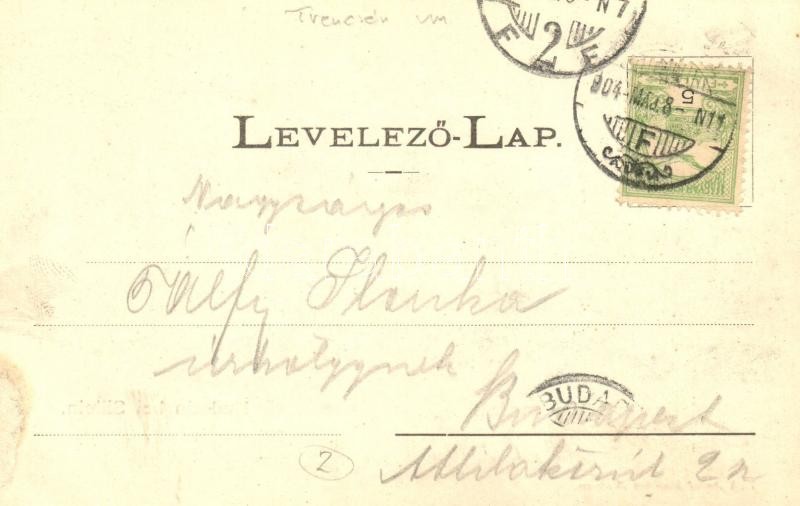 Trencsén vm
2
F F
904 MÁJ 8 - N11
F
5
LEVELEZŐ-LAP.
Nagyságos
Pálfy Ilonka
úrhölgynek
BUDAP
Budapest
Attilakörút 2 sz
2